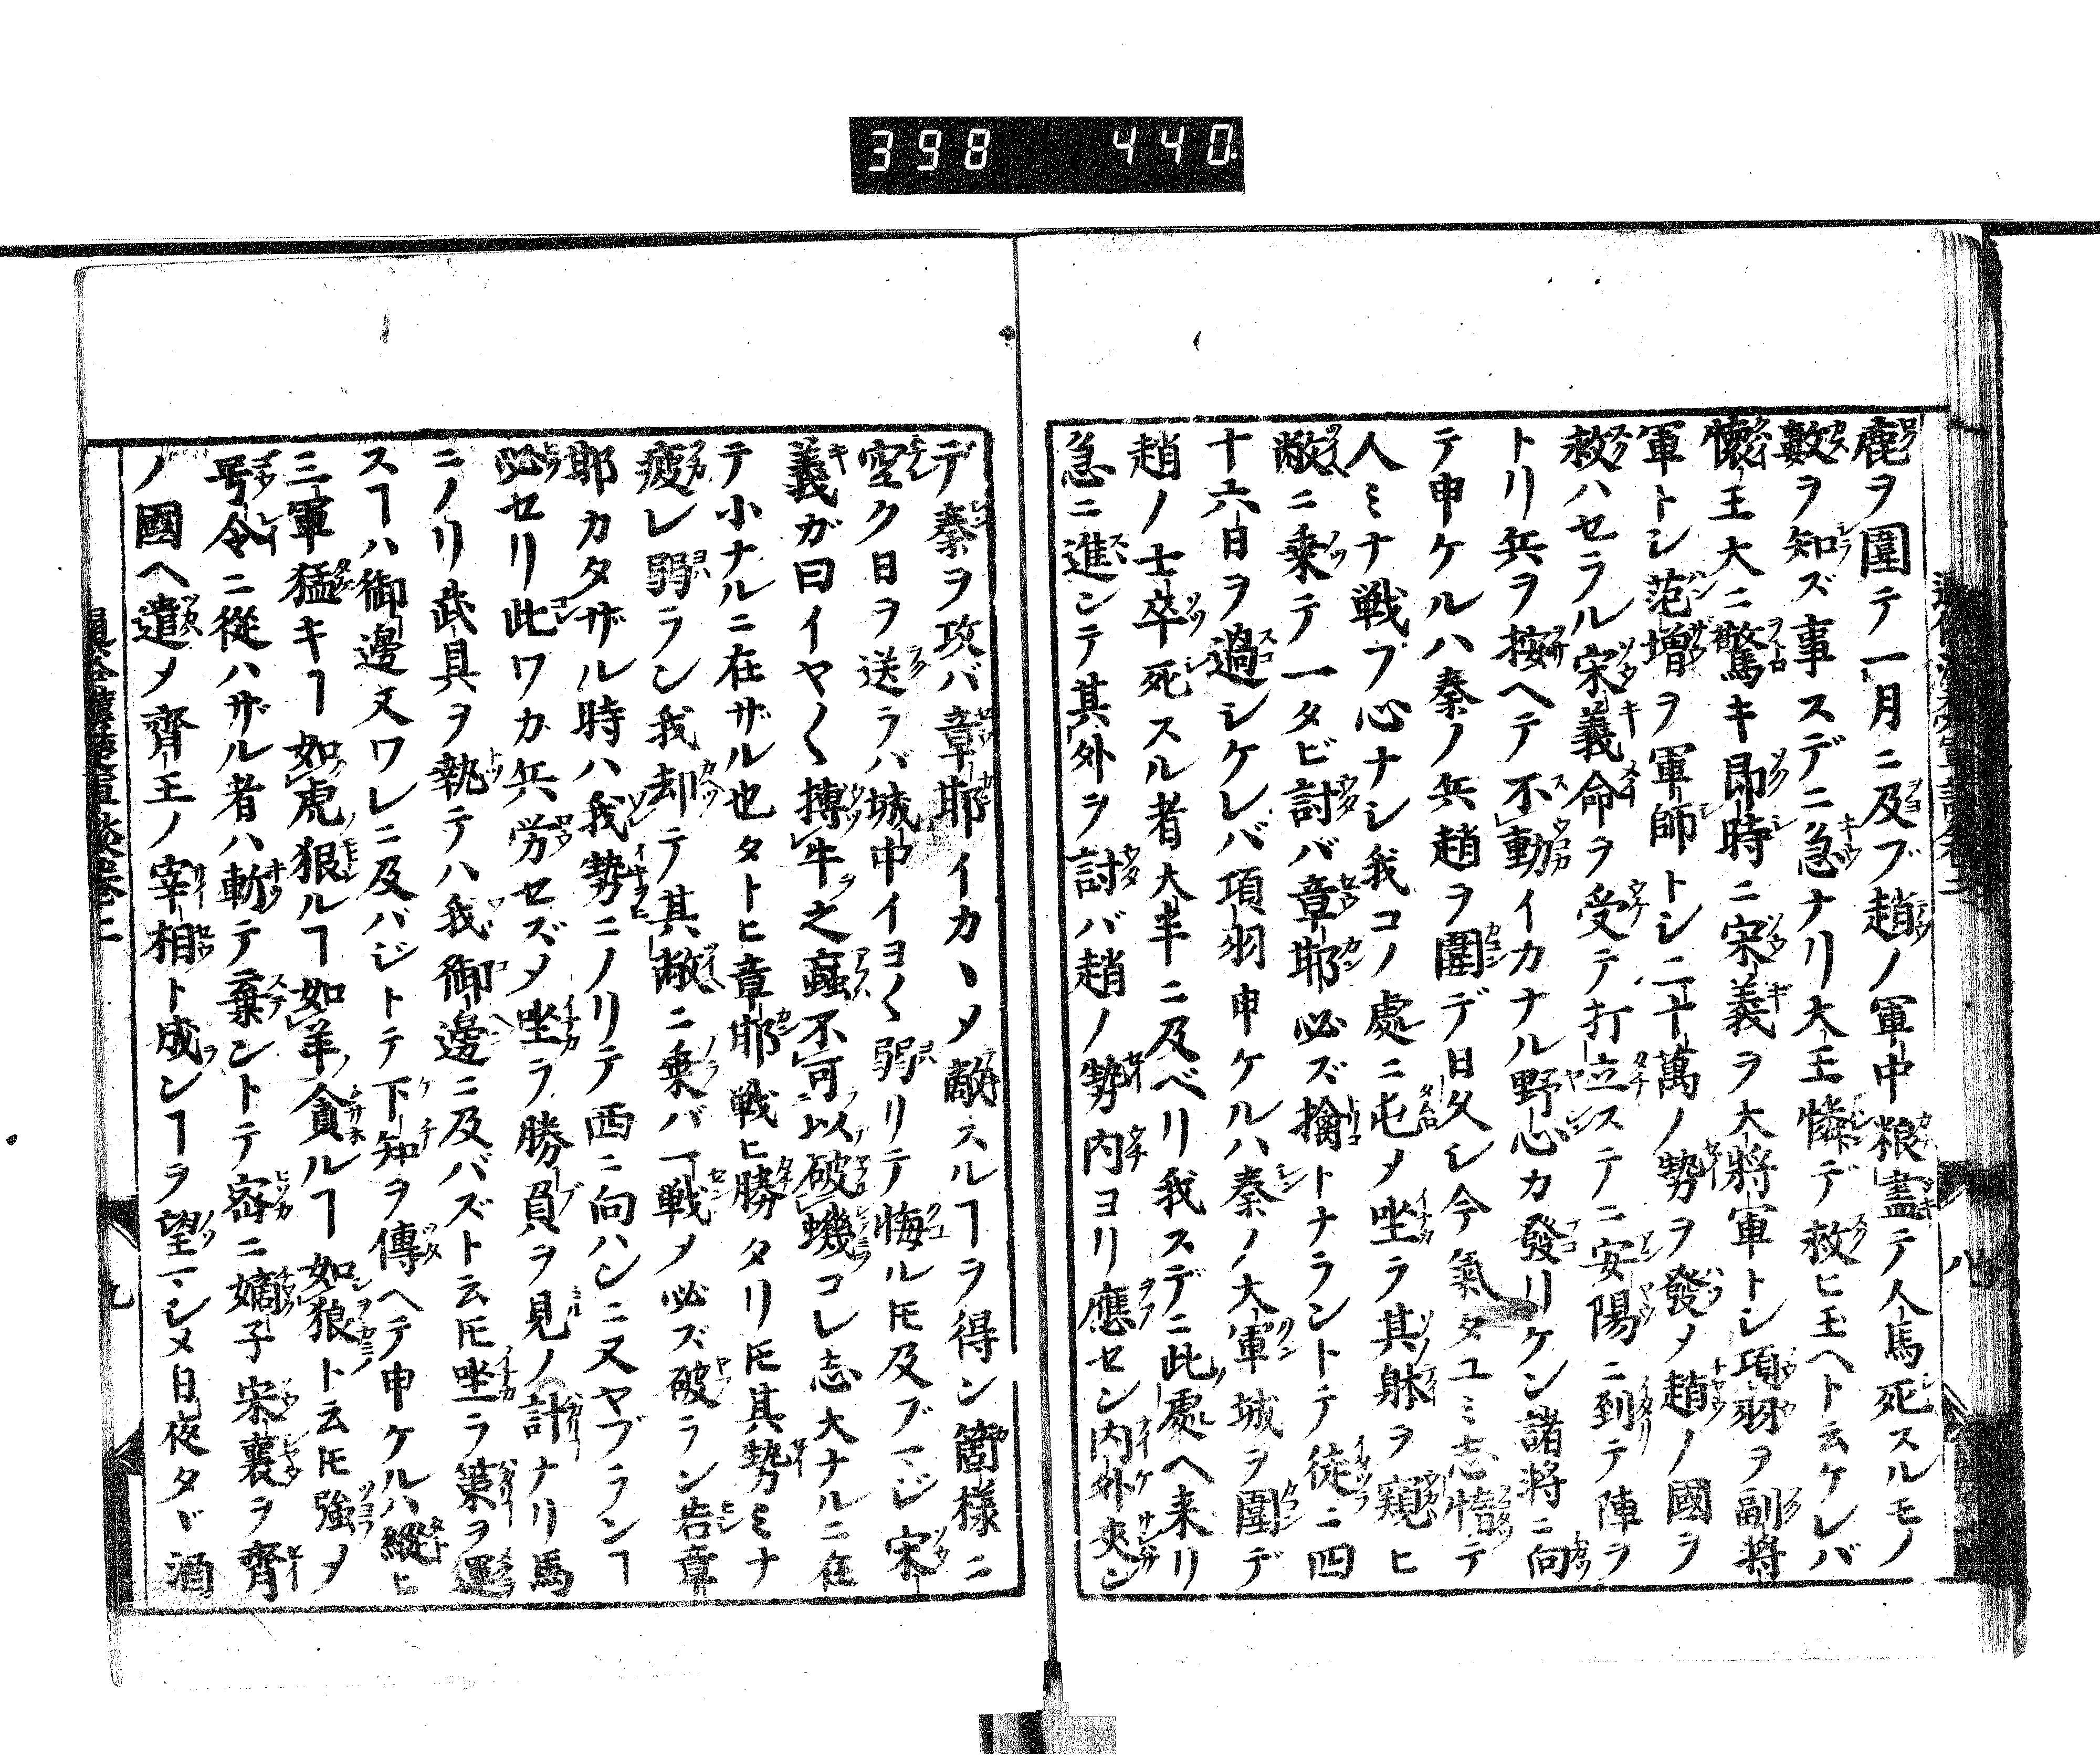 398 440
鹿ヲ圍テ一月ニ及ブ趙ノ軍中粮盡テ人馬死スルモノ
數ヲ知ズ事スデニ急ナリ大王憐デ救ヒ玉ヘト云ケレバ
懷王大ニ驚キ即時ニ宋義ヲ大將軍トシ項羽ヲ副將
軍トシ范増ヲ軍師トシ二十萬ノ勢ヲ發メ趙ノ國ヲ
救ハセラル宋義命ヲ受テ打立ステニ安陽ニ到テ陣ヲ
トリ兵ヲ按ヘテ不動イカナル野心カ發リケン諸將ニ向
テ申ケルハ秦ノ兵趙ヲ圍デ日久シ今氣タユミ志惰テ
人ミナ戦フ心ナシ我コノ處ニ屯メ坐ラ其躰ヲ窺ヒ
敝ニ乗テ一タビ討バ章邯必ズ擒トナラントテ徒ニ四
十六日ヲ過シケレバ項羽申ケルハ秦ノ大軍城ヲ圍デ
趙ノ士卒死スル者大半ニ及ベリ我スデニ此處ヘ来リ
急ニ進ンテ其外ヲ討バ趙ノ勢内ヨリ應セン内外夾ン
デ秦ヲ攻バ章邯イカヽメ敵スルヿヲ得ン箇様ニ
空ク日ヲ送ラバ城中イヨ〱弱リテ悔ルトモ及ブマジ宋
義ガ曰イヤ〱搏牛之蝱不可以破蟣コレ志大ナルニ在
テ小ナルニ在ザル也タトヒ章邯戦ヒ勝タリトモ其勢ミナ
疲レ弱ラン我却テ其敝ニ乗バ一戦メ必ズ破ラン若章
邯カタザル時ハ我勢ニノリテ西ニ向ハンニ又ヤブランヿ
必セリ此ワカ兵労セズメ坐ラ勝負ヲ見ノ計ナリ馬
ニノリ武具ヲ執テハ我御邊ニ及バズト云トモ坐ラ策ヲ運
スヿハ御邊又ワレニ及バジトテ下知ヲ傳ヘテ申ケルハ縦ヒ
三軍猛キヿ如虎狠ルヿ如羊貪ルヿ如狼ト云トモ強メ
号令ニ從ハザル者ハ斬テ棄ントテ密ニ嫡子宋襄ヲ齊
ノ國ヘ遣メ齊王ノ宰相ト成シヿヲ望マシメ日夜タヾ酒
八
九